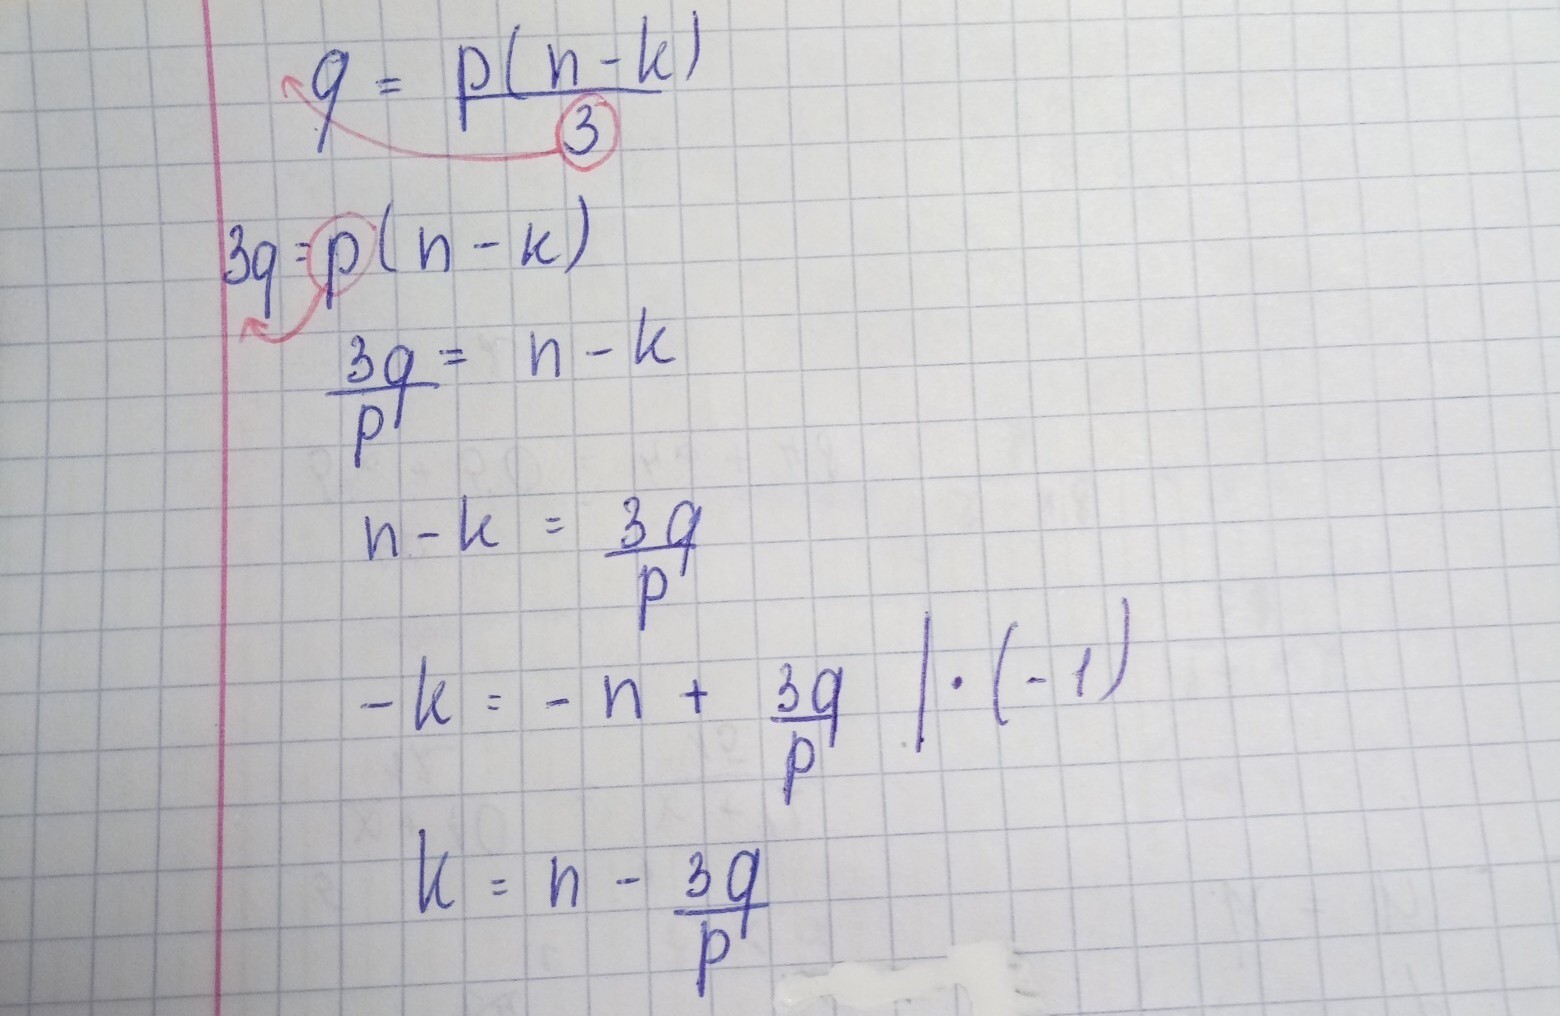 q = p(n-k)/3
3q = p(n-k)
3q/p = n-k
n-k = 3q/p
-k = -n + 3q/p | · (-1)
k = n - 3q/p